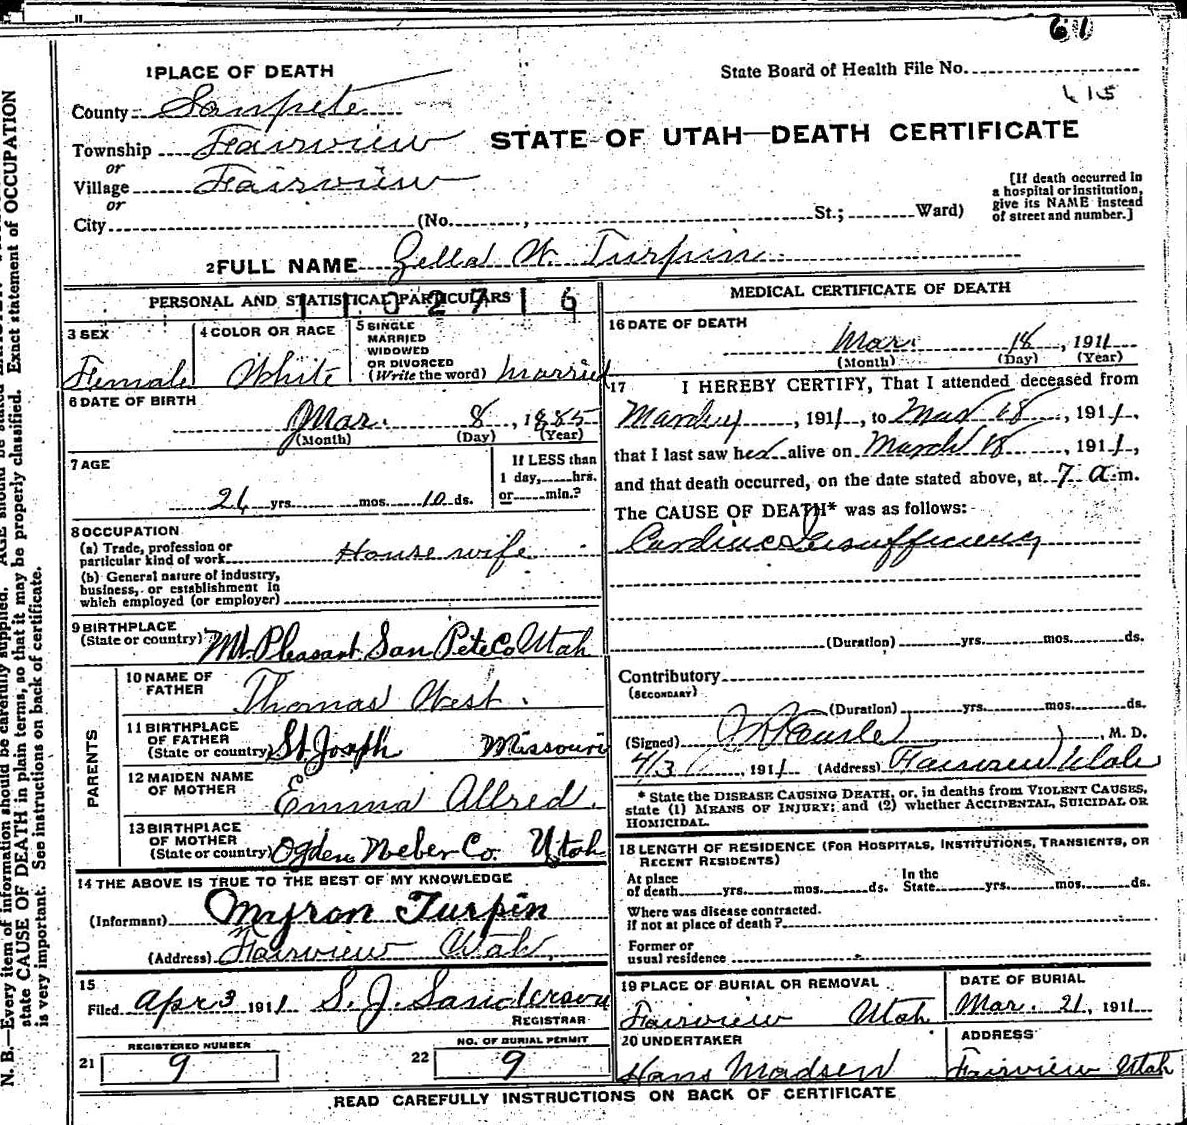 61
1 PLACE OF DEATH
State Board of Health File No.
County Sanpete
415
Township Fairview
STATE OF UTAH—DEATH CERTIFICATE
or
Village Fairview
or
City (No. , St.; Ward)
[If death occurred in
a hospital or institution,
give its NAME instead
of street and number.]
2 FULL NAME Zella W. Turpin
PERSONAL AND STATISTICAL PARTICULARS
1 1 0 2 7 1 6
3 SEX
Female
4 COLOR OR RACE
White
5 SINGLE
MARRIED
WIDOWED
OR DIVORCED
(Write the word) Married
6 DATE OF BIRTH
Mar. 8, 1885
(Month) (Day) (Year)
7 AGE
26 yrs. mos. 10 ds.
If LESS than
1 day, hrs.
or min.?
8 OCCUPATION
(a) Trade, profession or
particular kind of work House wife
(b) General nature of industry,
business, or establishment in
which employed (or employer)
9 BIRTHPLACE
(State or country) Mt. Pleasant San Pete Co Utah
PARENTS
10 NAME OF
FATHER Thomas West.
11 BIRTHPLACE
OF FATHER
(State or country) St. Joseph Missouri
12 MAIDEN NAME
OF MOTHER Emma Allred.
13 BIRTHPLACE
OF MOTHER
(State or country) Ogden Weber Co. Utah
14 THE ABOVE IS TRUE TO THE BEST OF MY KNOWLEDGE
(Informant) Myron Turpin
(Address) Fairview Utah.
15
Filed Apr 3 1911 S. J. Sanderson
REGISTRAR
REGISTERED NUMBER
21 9
NO. OF BURIAL PERMIT
22 9
MEDICAL CERTIFICATE OF DEATH
16 DATE OF DEATH
Mar. 18, 1911
(Month) (Day) (Year)
17 I HEREBY CERTIFY, That I attended deceased from
, 1911, to Mar 18, 1911,
that I last saw her alive on March 18, 1911,
and that death occurred, on the date stated above, at 7 a.m.
The CAUSE OF DEATH* was as follows:
Cardiac Insufficiency
(Duration) yrs. mos. ds.
Contributory
(SECONDARY)
(Duration) yrs. mos. ds.
(Signed) , M. D.
4/3, 1911 (Address) Fairview Utah
* State the DISEASE CAUSING DEATH, or, in deaths from VIOLENT CAUSES,
state (1) MEANS OF INJURY; and (2) whether ACCIDENTAL, SUICIDAL OR
HOMICIDAL.
18 LENGTH OF RESIDENCE (FOR HOSPITALS, INSTITUTIONS, TRANSIENTS, OR
RECENT RESIDENTS)
At place
of death yrs. mos. ds. In the
State yrs. mos. ds.
Where was disease contracted.
if not at place of death?
Former or
usual residence
19 PLACE OF BURIAL OR REMOVAL
Fairview Utah
DATE OF BURIAL
Mar. 21, 1911
20 UNDERTAKER
Hans Madsen
ADDRESS
Fairview Utah
READ CAREFULLY INSTRUCTIONS ON BACK OF CERTIFICATE
N. B.—Every item of information should be carefully supplied. AGE should be stated
state CAUSE OF DEATH in plain terms, so that it may be properly classified. Exact statement of OCCUPATION
is very important. See instructions on back of certificate.